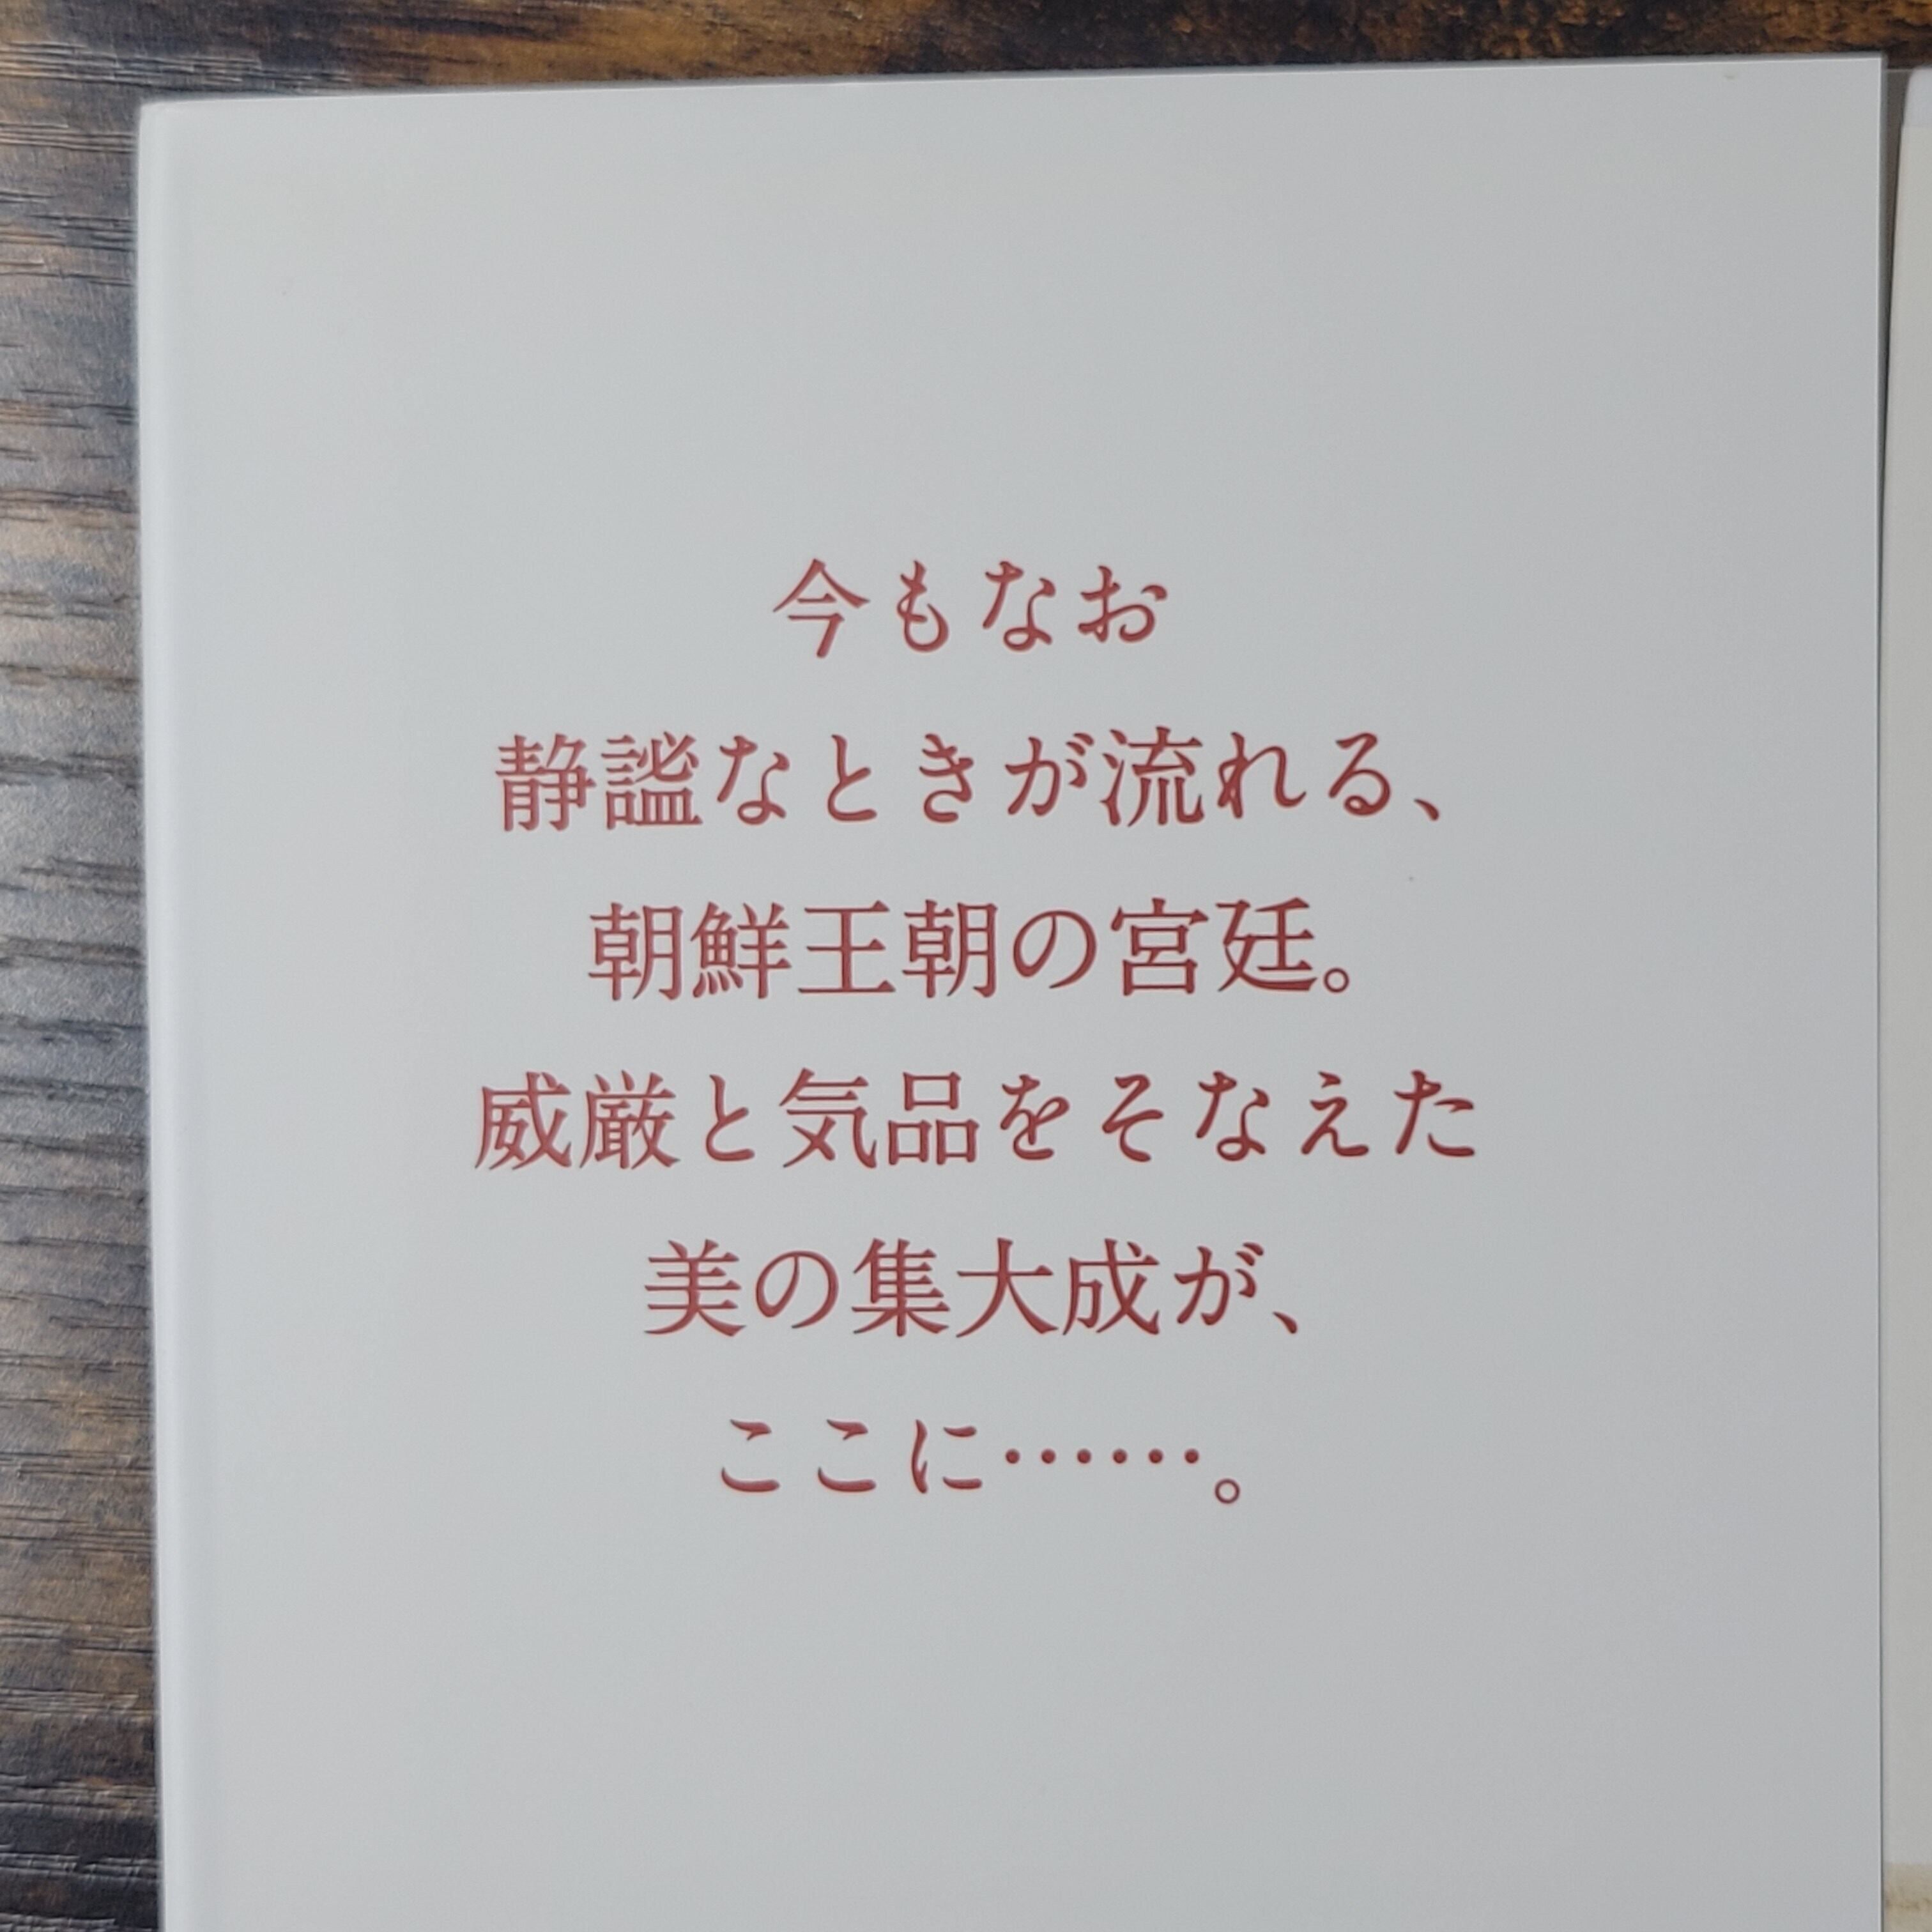 今もなお
静謐なときが流れる、
朝鮮王朝の宮廷。
威厳と気品をそなえた
美の集大成が、
ここに……。